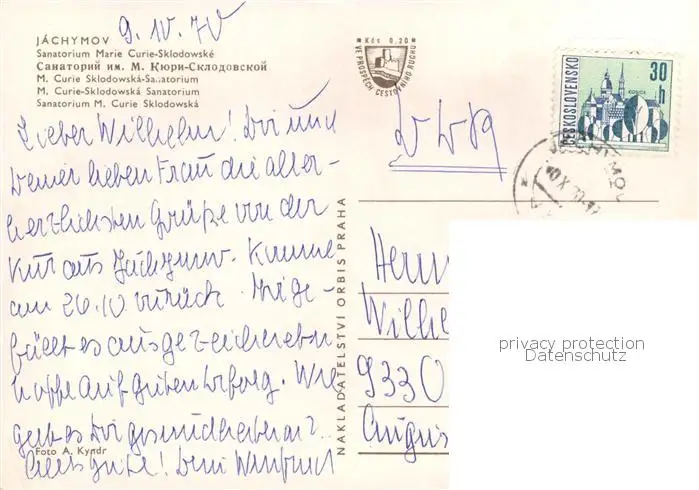 JÁCHYMOV
Sanatorium Marie Curie-Sklodowské
Санаторий им. М. Кюри-Склодовской
M. Curie Sklodowská-Sanatorium
M. Curie-Sklodowská Sanatorium
Sanatorium M. Curie Sklodowská
9. 10. 70
Lieber Wilhelm! Dir und
Deiner lieben Frau die aller-
herzlichsten Grüße von der
Kur aus Jáchymov. Komme
am 26.10 zurück. Mir ge-
fällt es ausgezeichnet und
hoffe auf guten Erfolg. Wie
geht es Dir gesundheitlich?..
Alles Gute! Dein Winfried
Foto A. Kyndr
NAKLADATELSTVÍ ORBIS PRAHA
Kčs 0,20
VE PROSPĚCH CESTOVNÍHO RUCHU
ČESKOSLOVENSKO
30 h
KOŠICE
Herrn
Wilhe
9330
Augus
privacy protection
Datenschutz